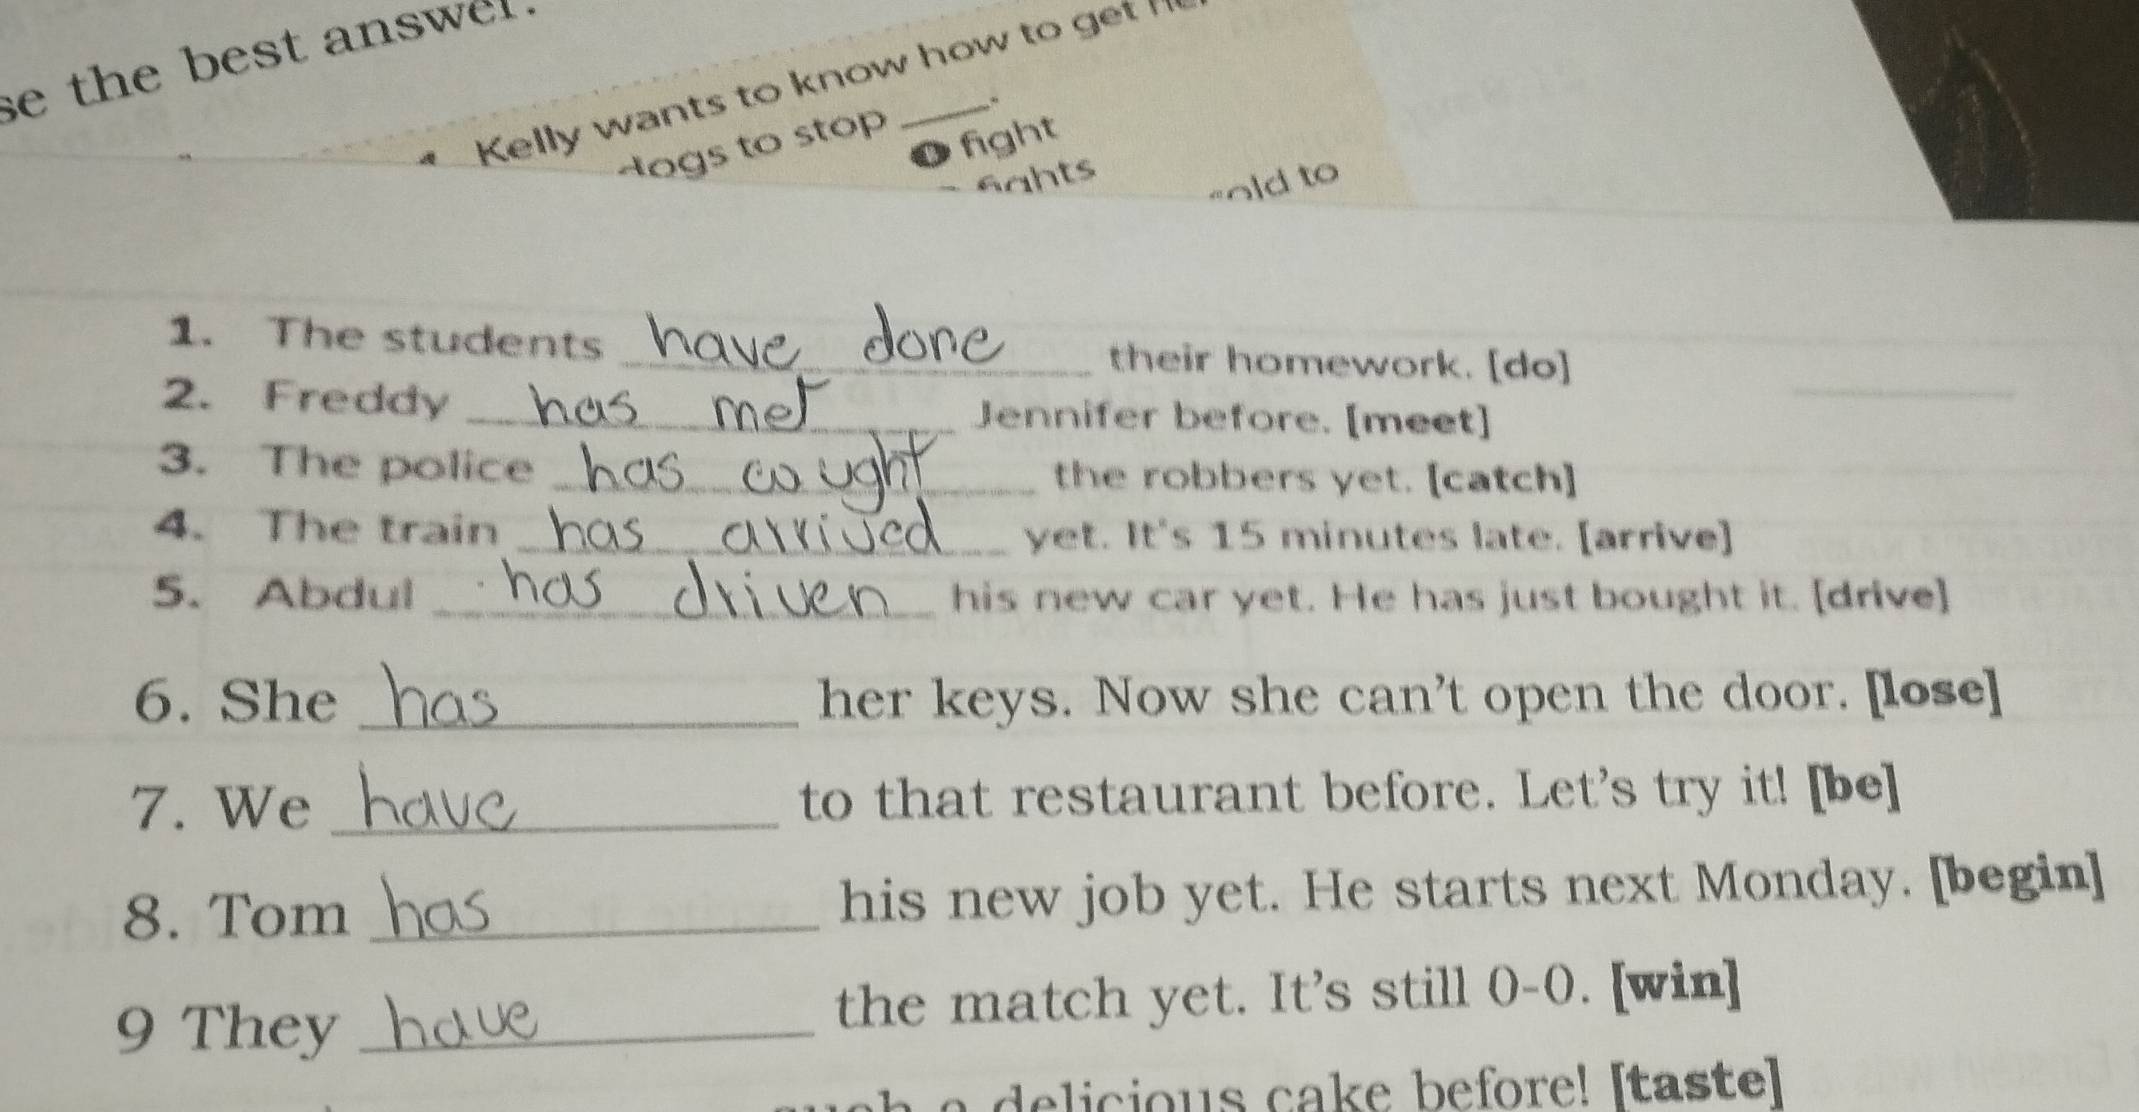 se the best answer.
Kelly wants to know how to get
dogs to stop ____.
❶ fight
fights
told to
1. The students have done their homework. [do]
2. Freddy has met Jennifer before. [meet]
3. The police has cought the robbers yet. [catch]
4. The train has arrived yet. It's 15 minutes late. [arrive]
5. Abdul has driven his new car yet. He has just bought it. [drive]
6. She has ____ her keys. Now she can't open the door. [lose]
7. We have ____ to that restaurant before. Let's try it! [be]
8. Tom has ____ his new job yet. He starts next Monday. [begin]
9 They have ____ the match yet. It's still 0-0. [win]
such a delicious cake before! [taste]